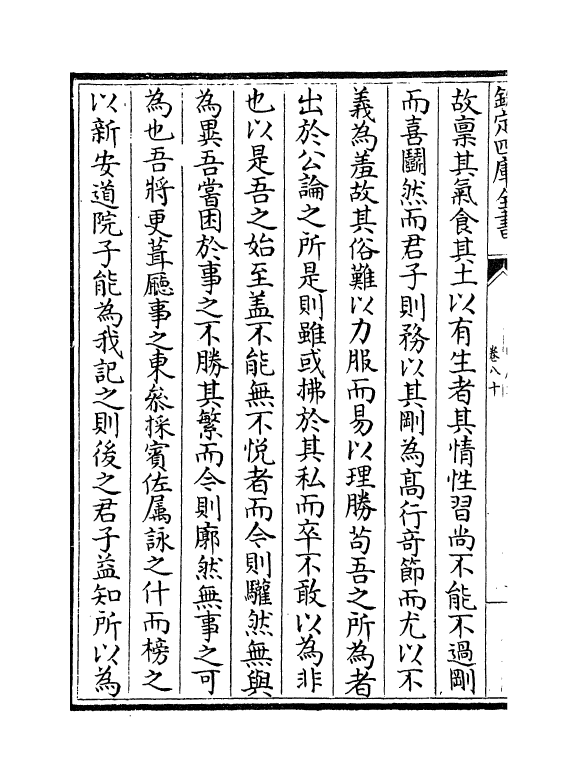 欽定四庫全書
卷八十
故禀其氣食其土以有生者其情性習尚不能不過剛
而喜鬭然而君子則務以其剛為髙行竒節而尤以不
義為羞故其俗難以力服而易以理勝苟吾之所為者
出於公論之所是則雖或拂於其私而卒不敢以為非
也以是吾之始至盖不能無不悦者而今則驩然無與
為異吾嘗困於事之不勝其繁而今則廓然無事之可
為也吾將更葺廳事之東叅採賔佐属詠之什而榜之
以新安道院子能為我記之則後之君子益知所以為